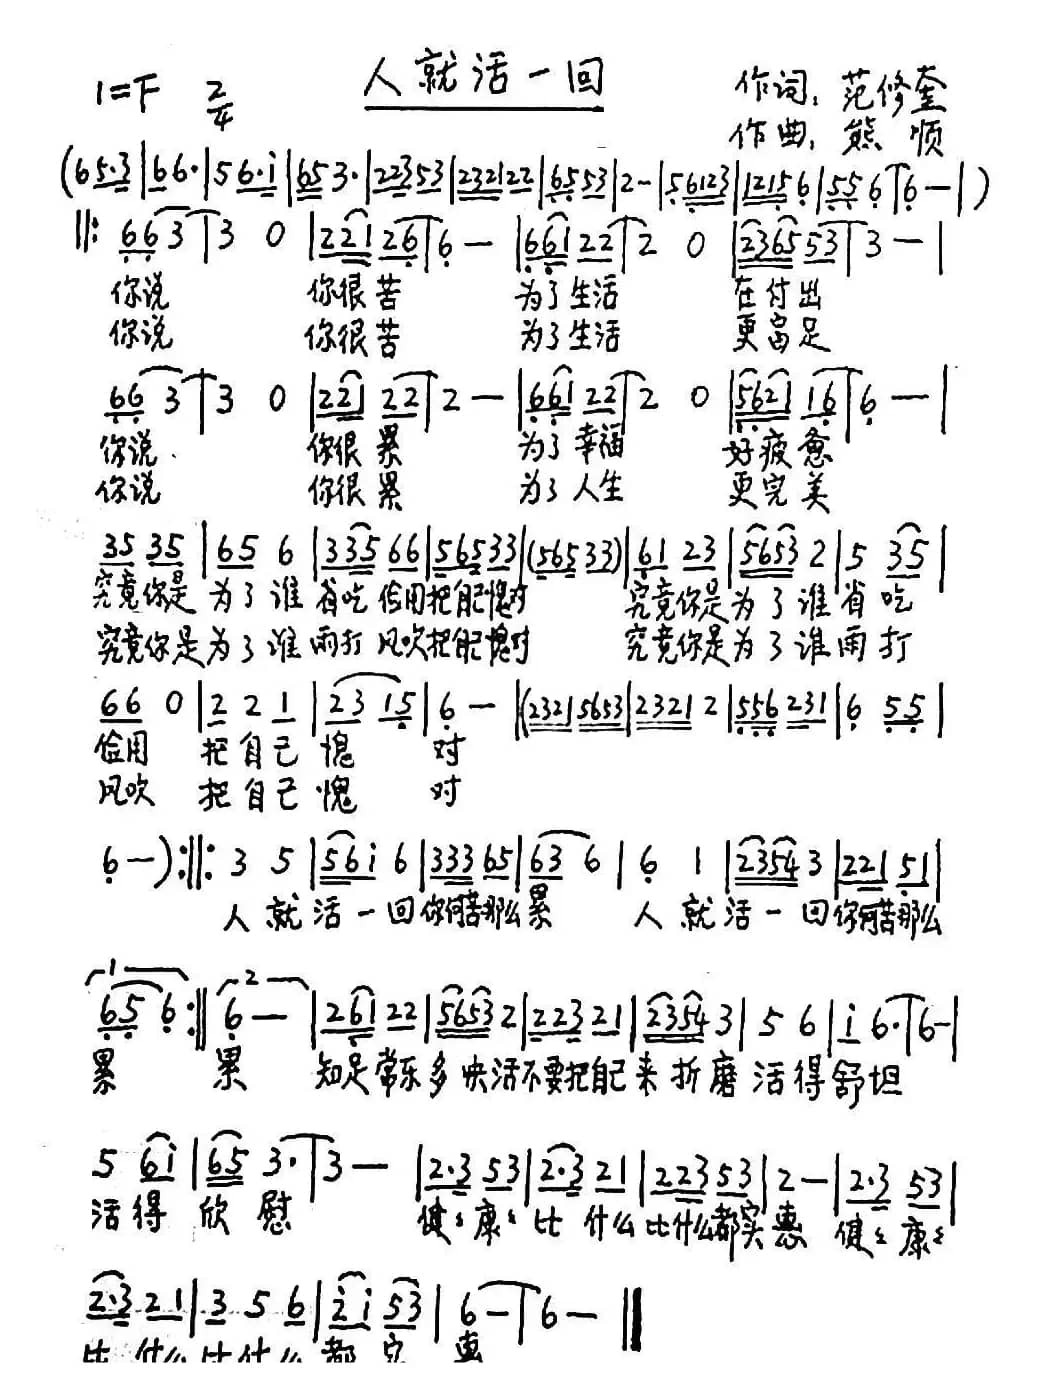 人就活一回
1=F 2/4
作词：范修奎
作曲：熊顺
(6 5·3 | 6 6· | 5 6·i | 6 5 3· | 2 2 3 5 3 | 2 2 3 2 1 2 2 | 6 5 5 3 | 2 - | 5 6 1 2 3 | 1 2 1 5 6 | 5 5 6 | 6 - | )
||: 6 6 3 | 3 0 | 2 2 1 2 6 | 6 - | 6 6 1 2 2 | 2 0 | 2 3 6 5 5 3 | 3 - |
你说 你很苦 为了生活 在付出
你说 你很苦 为了生活 更富足
6 6 3 | 3 0 | 2 2 1 2 2 | 2 - | 6 6 1 2 2 | 2 0 | 5 6 2 1 1 6 | 6 - |
你说 你很累 为了幸福 好疲惫
你说 你很累 为了人生 更完美
3 5 3 5 | 6 5 6 | 3 3 5 6 6 | 5 6 5 3 3 | (5 6 5 3 3) | 6 1 2 3 | 5 6 5 3 2 | 5 3 5 |
究竟你是 为了谁 省吃 俭用把自己愧对 究竟你是为了谁 省吃
究竟你是为了谁 雨打 风吹把自己愧对 究竟你是为了谁 雨打
6 6 0 | 2 2 1 | 2 3 1 5 | 6 - | (2 3 2 1 5 6 5 3 | 2 3 2 1 2 | 5 5 6 2 3 1 | 6 5 5 |
俭用 把自己 愧 对
风吹 把自己 愧 对
6 - ) :||: 3 5 | 5 6 i 6 | 3 3 3 6 5 | 6 3 6 | 6 1 | 2 3 5 4 3 | 2 2 1 5 1 |
人就活一回你何苦那么累 人就活一回你何苦那么
1 2
6 5 6 :|| 6 - | 2 6 1 2 2 | 5 6 5 3 2 | 2 2 3 2 1 | 2 3 5 4 3 | 5 6 | i 6· | 6 - |
累 累 知足常乐多快活不要把自己来折磨活得舒坦
5 6 i | 6 5 3· | 3 - | 2·3 5 3 | 2·3 2 1 | 2 2 3 5 3 | 2 - | 2·3 5 3 |
活得欣慰 健々康々比什么比什么都实惠 健々康々
2·3 2 1 | 3 5 6 | 2 i 5 3 | 6 - | 6 - ||
比什么比什么都实惠